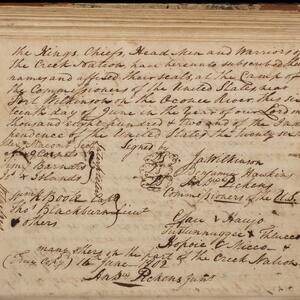 the Kings, Chiefs, Head Men and Warriors of
the Creek Nation, have hereunto subscribed their
names and affixed their seals, at the Camp of
the Commissioners of the United States near
Fort Wilkinson on the Oconee River, this six
teenth day of June in the Year of our Lord one
thousand eight hundred & two and of the Inde
pendence of the United States the twenty six
Signed by
Ja Wilkinson
Benjamin Hawkins
And Pickens
Commissioners of the U.S.
Wm Barnett
& Islands
Wm R Boote Capt
Blackburn Lieut
& others
Efau Haujo
Tustunnuggee Thlucco
Hopoie Micco
& many others on the part of the Creek Nation
(True Copy) 16 June 1802
And Pickens Junr